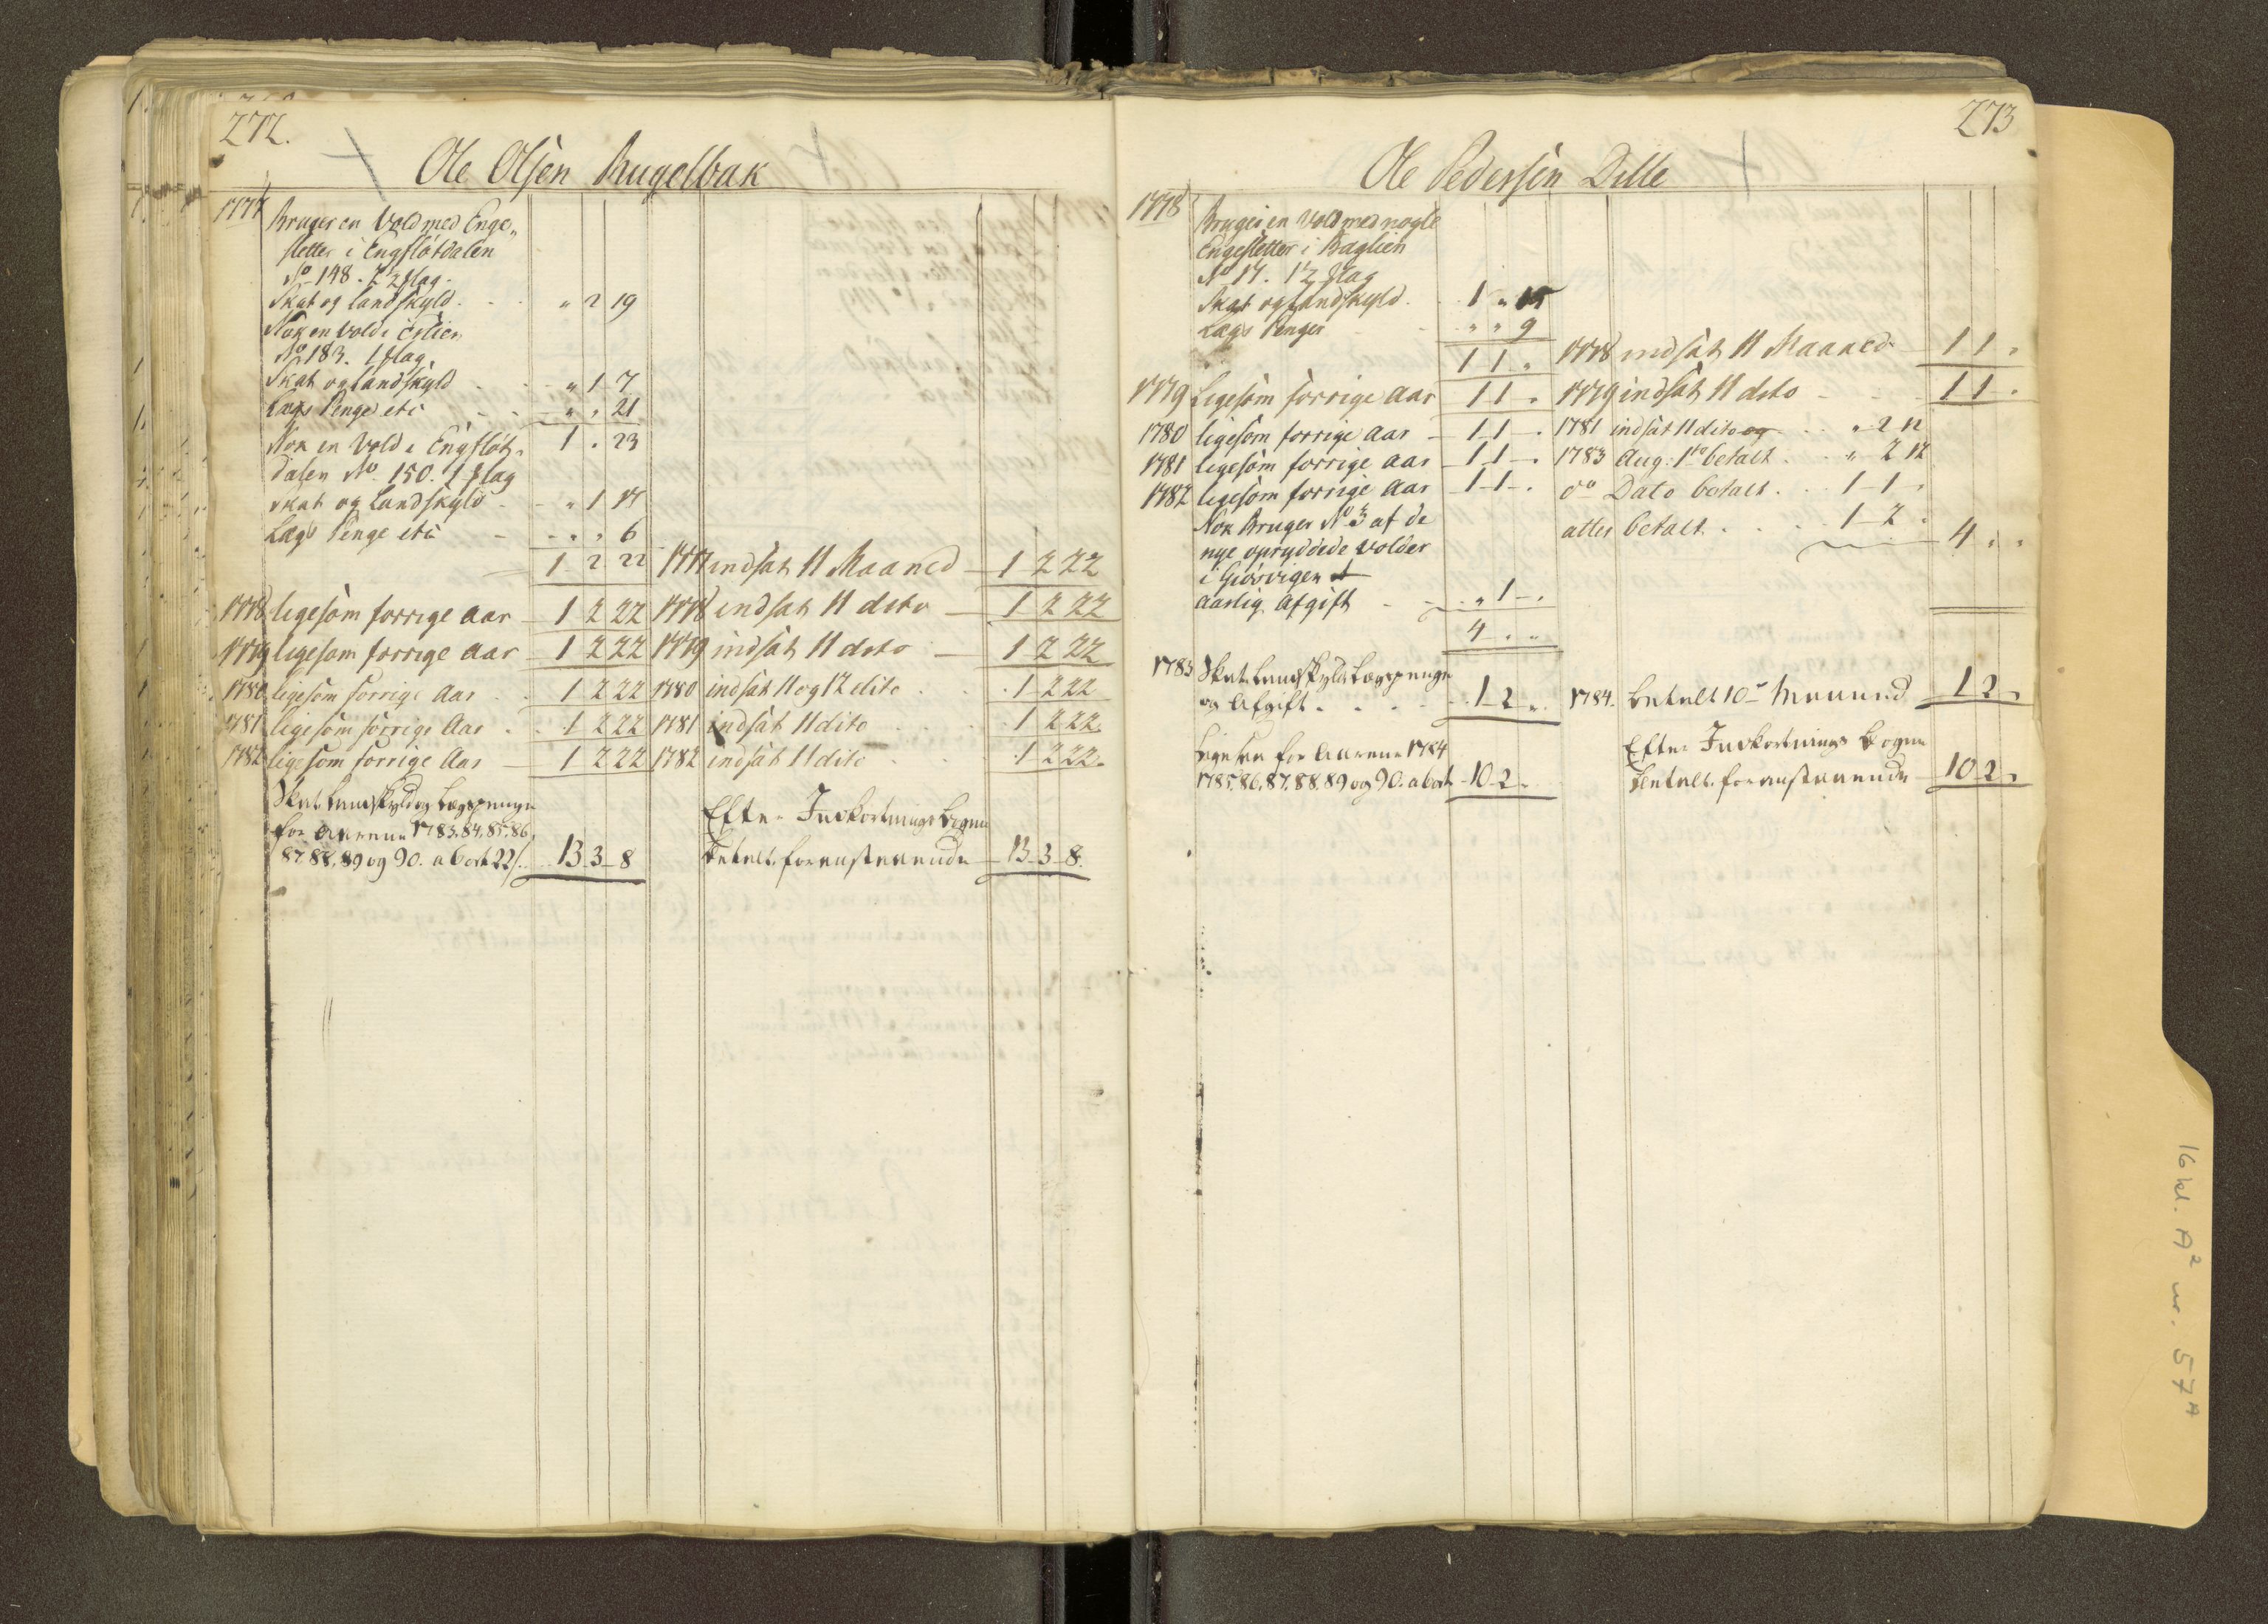 272.
Ole Olsen Rugelbak
1777 Bruger en Vold med Enge„
sletter i Engflötdalen
No 148. 2 1/2 flag.
Skat og Landskyld . . „ 2 19
Nok en Vold i Erlien
No 183. 1 flag.
Skat og Landskyld . . „ 1 7
Lægs Penge etc . . „ „ 21
1 . 23
Nok en Vold i Engflöt„
dalen No. 150. 1 flag
Skat og Landskyld . . „ 1 17
Lægs Penge etc - . . „ 6
1 2 22 1777 indsat 11 Maaned — 1 2 22
1778 ligesom forrige Aar — 1 2 22 1778 indsat 11 dito — 1 2 22
1779 ligesom forrige Aar — 1 2 22 1779 indsat 11 dito — 1 2 22
1780 ligesom forrige Aar . . 1 2 22 1780 indsat 11 og 12 dito . . 1 2 22
1781 ligesom forrige Aar . . 1 2 22 1781 indsat 11 dito . . 1 2 22.
1782 ligesom forrige Aar — 1 2 22 1782 indsat 11 dito . . 1 2 22.
Skat Landskyld og Lægspenge
for Aarene 1783, 84, 85, 86,
87, 88, 89 og 90. a 1 ort 22 s. . 13 3 8
Efter Indkortnings Bogen
betalt foranstaaende — 13 3 8.
273
Ole Pedersen Dille
1778 Bruger en Vold med nogle
Engesletter i Baglien
No 17. 1 1/2 flag
Skat og Landskyld . . 1 „ 15
Lægs Penger . „ „ 9
1 1 „ 1778 indsat 11 Maaned — 1 1 „
1779 Ligesom forrige Aar 1 1 „ 1779 indsat 11 dito - - 1 1 „
1780 ligesom forrige Aar — 1 1 — . 1781 indsat 11 dito og . . „ 2 12
1781 ligesom forrige Aar — 1 1 — . 1783 Aug. 1to betalt . „ 2 12
1782 ligesom forrige Aar — 1 1 — . do Dato betalt . . 1 1 „
Nok Bruger No 3 af de
nye opryddede Volder
atter betalt . . . . 1 2 . 4 „ „
i Giörvigen
aarlig Afgift . . „ 1 — .
4 „ „
1783 Skat Landskyld Lægspenge
og Afgift . . . . 1 2 „ 1784. betalt 10de Maaned 1 2 „
Ligesaa for Aarene 1784
1785, 86, 87, 88, 89 og 90. a 6 ort — 10 2 „
Efter Indkortnings Bogen
betalt foranstaaende — 10 2 „
16 kl. A2 nr. 57A